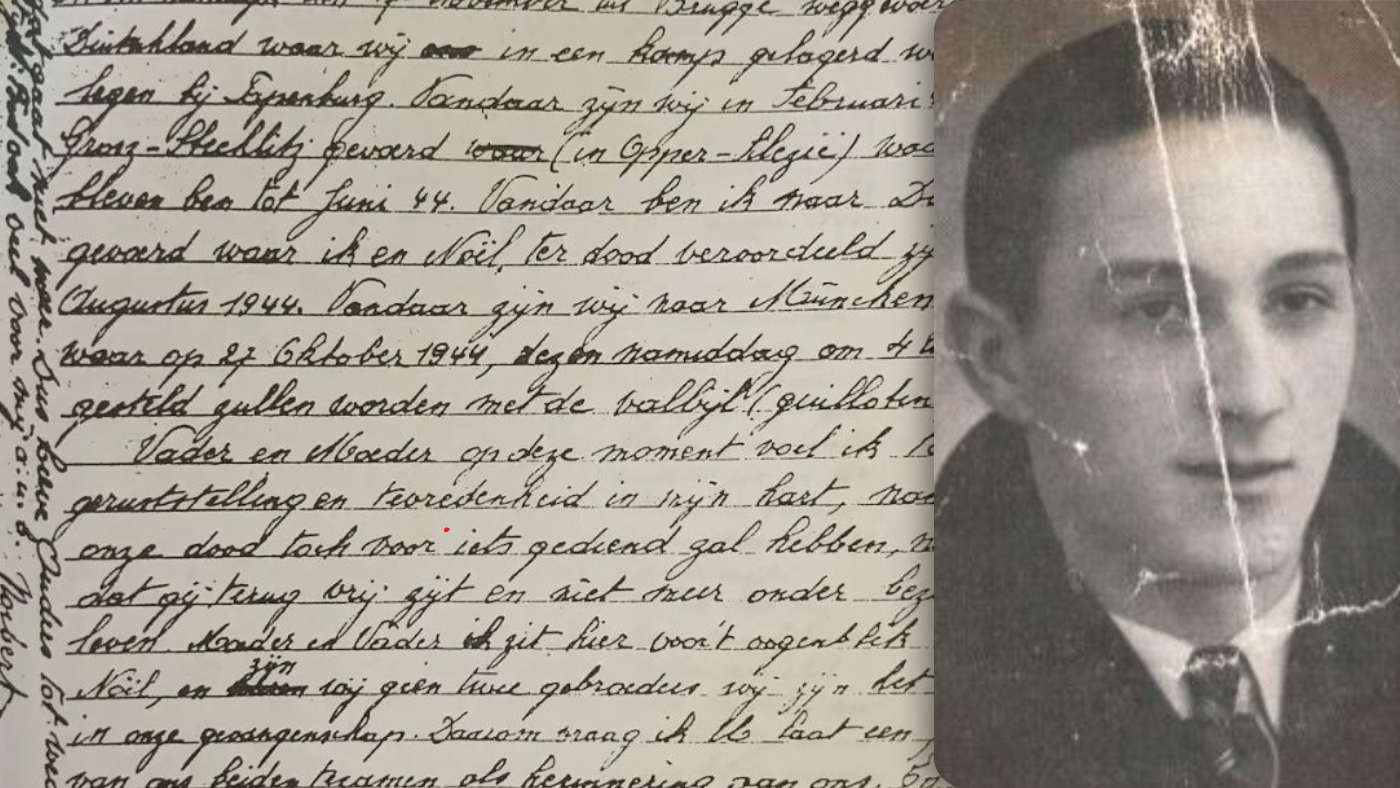 November uit Brugge weggevoer
Duitschland waar wij in een kamp gelagerd w
legen bij Papenburg. Vandaar zijn wij in Februari
Grosz-Strehlitz gevoerd waar (in Opper-Silezië) waa
bleven ben tot Juni 44. Vandaar ben ik naar Du
gevoerd waar ik en Noël, ter dood veroordeeld zij
Augustus 1944. Vandaar zijn wij naar München
waar op 27 Oktober 1944, dezen namiddag om 4 u
gesteld zullen worden met de valbijl (guillotin
Vader en Moeder op deze moment voel ik
geruststelling en tevredenheid in mijn hart,
onze dood toch voor iets gediend zal hebben, n
dat gij terug vrij zijt en niet meer onder bez
leven. Moeder en Vader ik zit hier voor't oogenblik
Noël, en zijn wij geen twee gebroeders wij zijn het
in onze gevangenschap. Daarom vraag ik U laat een
van ons beiden tezamen als herinnering van ons. En
gaat niet meer. Dus lieve Ouders tot wed
ook veel voor mij a.u.b. Norbert